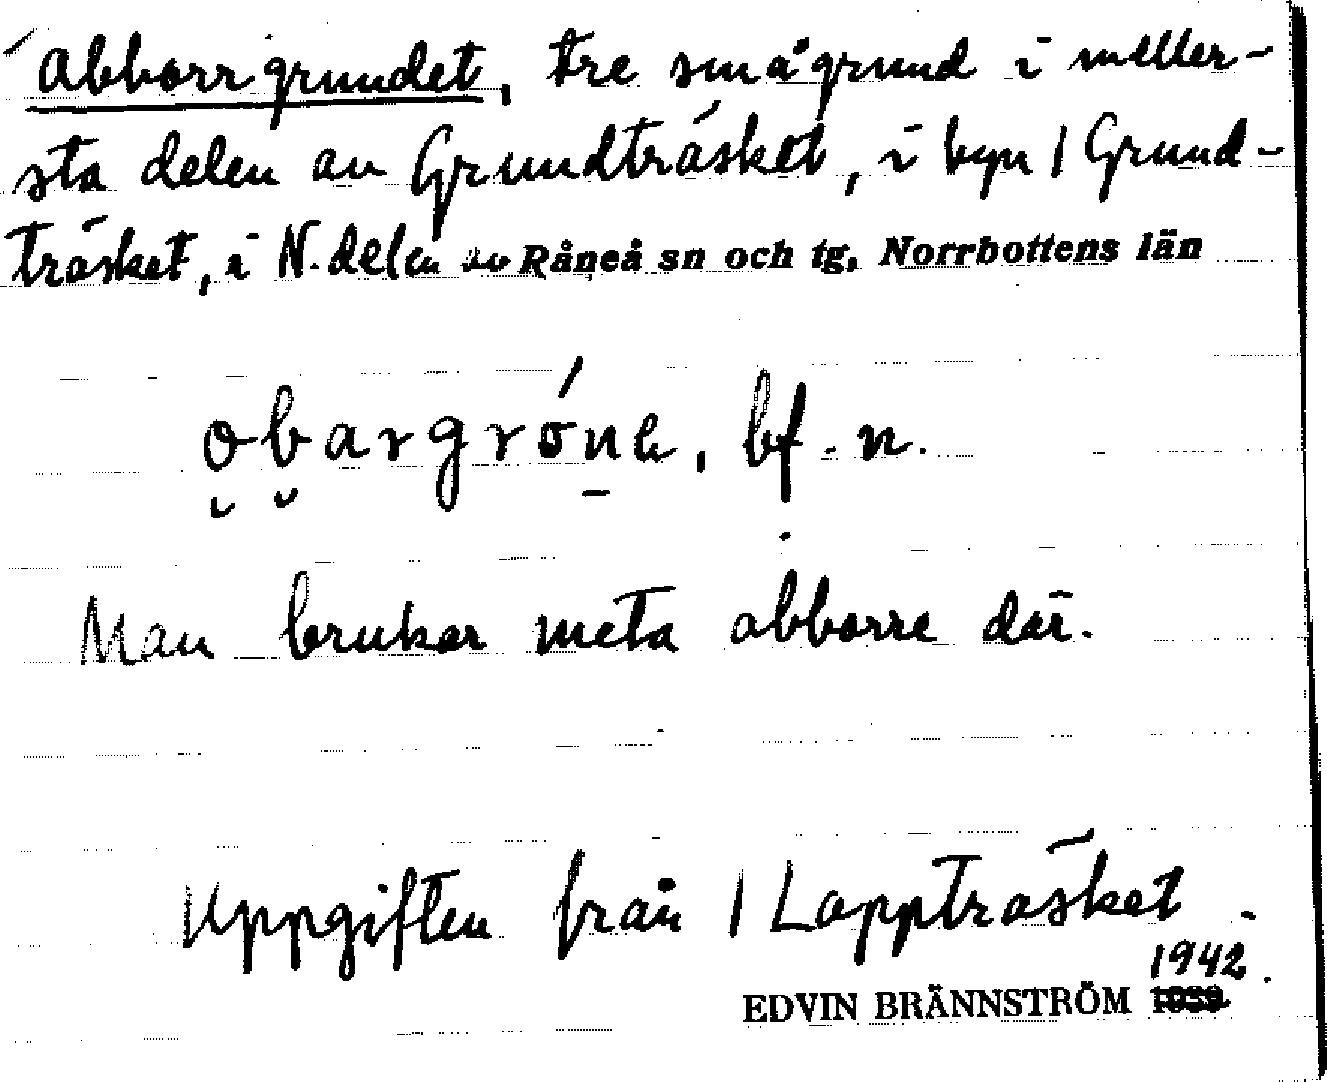 Abborrgrundet, tre smågrund i meller-
sta delen av Grundträsket, i byn 1 Grund-
träsket, i N. delen av Råneå sn och tg, Norrbottens län
bf. n.
Man brukar meta abborre där.
Uppgiften från 1 Lappträsket.
1942.
EDVIN BRÄNNSTRÖM